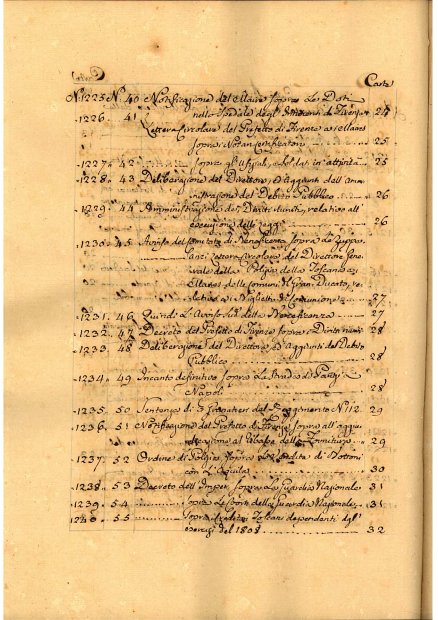 Carte
N.° 1225 N.° 40 Notificazione del Maire sopra Le Doti
nello Spedale degl' Innocenti di Firenze 24
1226. 41 Lettera Circolare del Prefetto di Firenze ai Maires
sopra 25
1227. 42 sopra gli Ufiziali, e Soldati in attività 25
1228. 43 Deliberazione del Direttore, ed Aggiunti dell' Ammi
nistrazione del Debito Pubblico 26
1229. 44 Amministrazione dei Diritti riuniti, relativo all'
esecuzione delle Leggi 26
1230. 45 Avviso del Comitato di Beneficenza sopra Le Zuppe
Lettera Circolare del Direttore Gene
rale della Polizia della Toscana ai
Maires delle Comuni il Gran Ducato, re
lativa ai Biglietti 27
1231. 46 Quindi L'Avviso della Beneficenza 27
1232. 47 Decreto del Prefetto di Firenze sopra i Diritti riuniti 28
1233. 48 Deliberazione del Direttore ed Aggiunti del Debito
Pubblico 28
1234. 49 Incanto definitivo sopra La Strada di
Napoli 28
1235. 50 Sentenza di 3 del Reggimento N.° 112. 29
1236. 51 Notificazione del Prefetto di Firenze sopra all' aggiu
dicazione al ribasso delle Forniture 29
1237. 52 Ordine di Polizia sopra La Vendita di Bottoni
con L'Aquila 30
1238. 53 Decreto dell' Imper. sopra La Guardia Nazionale 31
1239. 54 sopra Le della Guardia Nazionale 31
1240. 55 sopra i crediti Toscani dependenti dagl'
esercizi del 1808 32